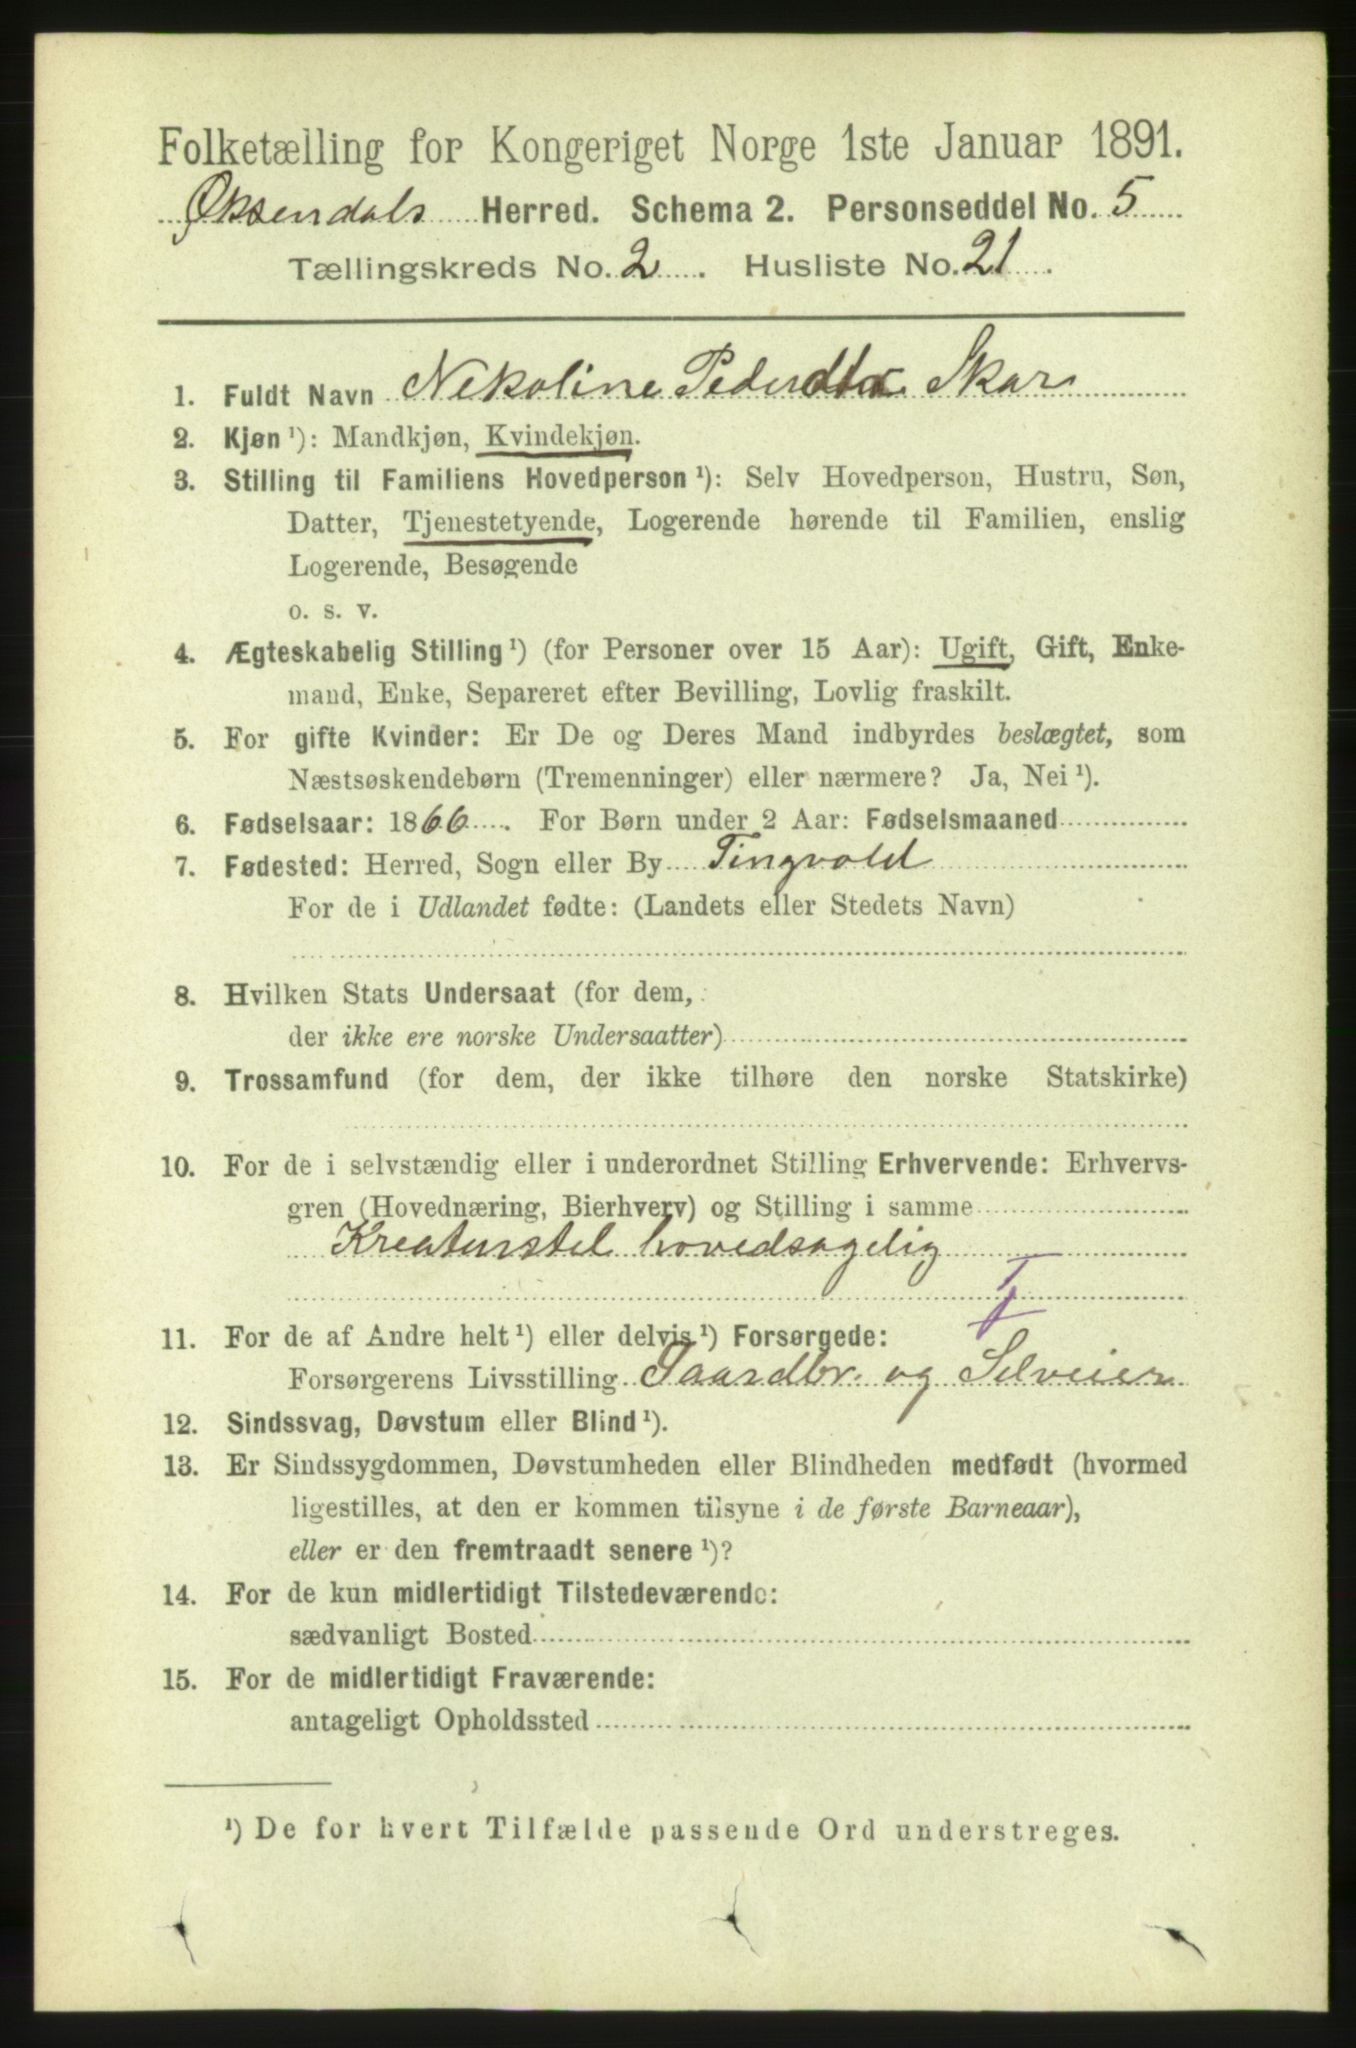 Folketælling for Kongeriget Norge 1ste Januar 1891.
Øksendals Herred. Schema 2. Personseddel No. 5
Tællingskreds No. 2 . Husliste No. 21 .
1. Fuldt Navn Nekoline Pedersdtr Skar
2. Kjøn ¹): Mandkjøn, Kvindekjøn.
3. Stilling til Familiens Hovedperson ¹): Selv Hovedperson, Hustru, Søn,
Datter, Tjenestetyende, Logerende hørende til Familien, enslig
Logerende, Besøgende
o. s. v.
4. Ægteskabelig Stilling ¹) (for Personer over 15 Aar): Ugift, Gift, Enke-
mand, Enke, Separeret efter Bevilling, Lovlig fraskilt.
5. For gifte Kvinder: Er De og Deres Mand indbyrdes beslægtet, som
Næstsøskendebørn (Tremenninger) eller nærmere? Ja, Nei ¹).
6. Fødselsaar: 1866. For Børn under 2 Aar: Fødselsmaaned
7. Fødested: Herred, Sogn eller By Tingvold
For de i Udlandet fødte: (Landets eller Stedets Navn)
8. Hvilken Stats Undersaat (for dem,
der ikke ere norske Undersaatter)
9. Trossamfund (for dem, der ikke tilhøre den norske Statskirke)
10. For de i selvstændig eller i underordnet Stilling Erhvervende: Erhvervs-
gren (Hovednæring, Bierhverv) og Stilling i samme
Kreaturstel hovedsagelig
11. For de af Andre helt ¹) eller delvis ¹) Forsørgede:
Forsørgerens Livsstilling Gaardbr. og Selveier
12. Sindssvag, Døvstum eller Blind ¹).
13. Er Sindssygdommen, Døvstumheden eller Blindheden medfødt (hvormed
ligestilles, at den er kommen tilsyne i de første Barneaar),
eller er den fremtraadt senere ¹)?
14. For de kun midlertidigt Tilstedeværende:
sædvanligt Bosted
15. For de midlertidigt Fraværende:
antageligt Opholdssted
¹) De for hvert Tilfælde passende Ord understreges.